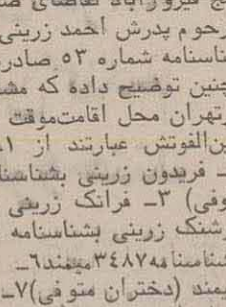 فیروزآباد تقاضای
رحوم پدرش احمد زرینی
ناسنامه شماره ۵۳ صادر
چنین توضیح داده که مش
رتهران محل اقامت‌موقت
ین‌الفوتش عبارتند از ۱
ـ فریدون زرینی بشناسنا
وفی) ۳ـ فرانک زرینی
شنک زرینی بشناسنامه
شناسنامه۳۴۸۷میمند۶ـ
یمند (دختران متوفی)۷ـ